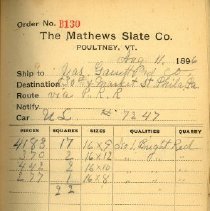 Order No. B130
The Mathews Slate Co.
POULTNEY, VT.
Aug 11, 1896
Ship to Geo.
Destination Market St Phila Pa
Route via P. R. R
Notify
Car 7247
PIECES SQUARES SIZES QUALITIES QUARRY
4183 17 16 x 9 No 1 Bright Red
370 2 16 x 12 "
442 2 16 x 10 "
277 1 16 x 8 "
22